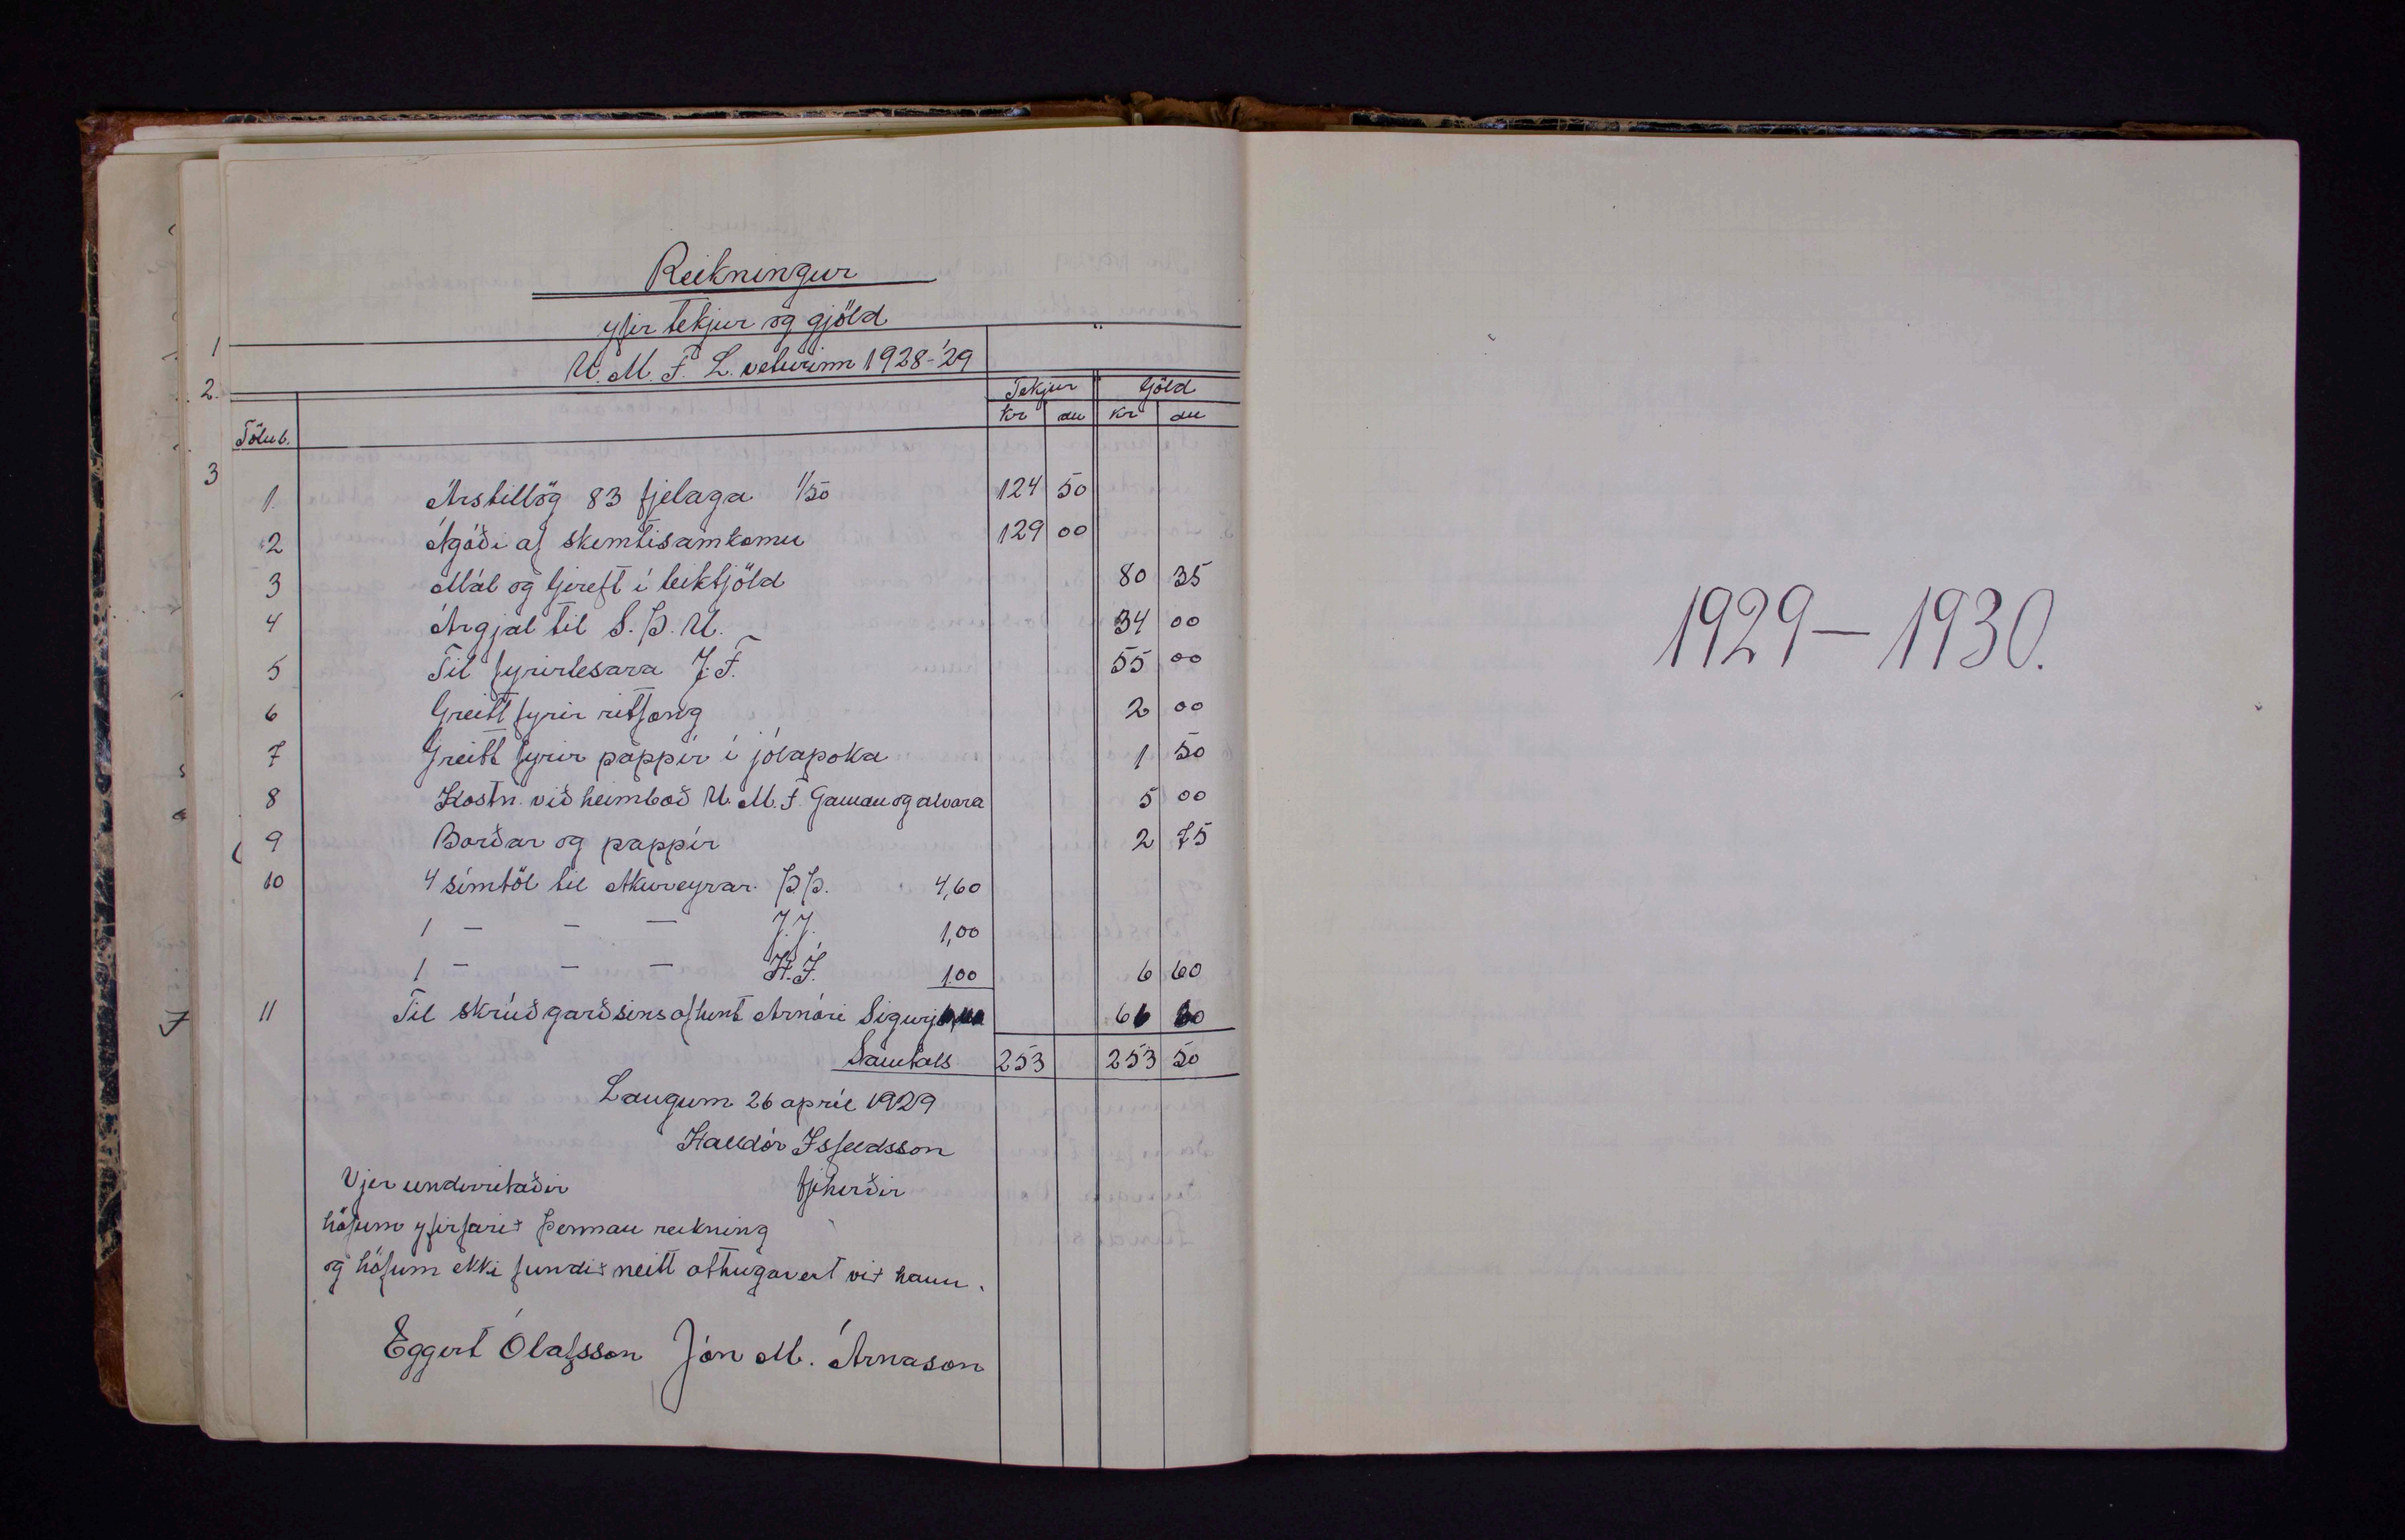 Reikningur
yfir tekjur og gjöld
U. M. F. L. veturinn 1928-'29
Tekjur Gjöld
Tölul. kr au kr au
1. Árstillög 83 fjelaga 1/50 124 50
2 Ágóði af skemtisamkomu 129 00
3 Mál og tjireft í leiktjöld 80 35
4 Árgjal til S. Þ. U. 34 00
5 Til fyrirlesara J. F. 55 00
6 Greitt fyrir ritföng 2 00
7 Greitt fyrir pappír í jólapoka 1 50
8 Kostn. við heimboð U. M. F. Gaman og alvara 5 00
9 Borðar og pappír 2 75
10 4 símtöl til Akureyrar. Þ Þ. 4,60
1 — — — J. J. 1,00
1 — — — H. Í. 1.00 6 60
11 Til skrúðgarðsins afhent Arnóri 66
Samtals 253 253 50
Laugum 26 apríl 1929
Halldór Ísfeldsson
Vjer undirritaðir fjehirðir
höfum yfirfarit þennan reikning
og höfum ekki fundit neitt athugavert vit hann.
Eggert Ólafsson Jón M. Árnason
1
2.
3
1929—1930.